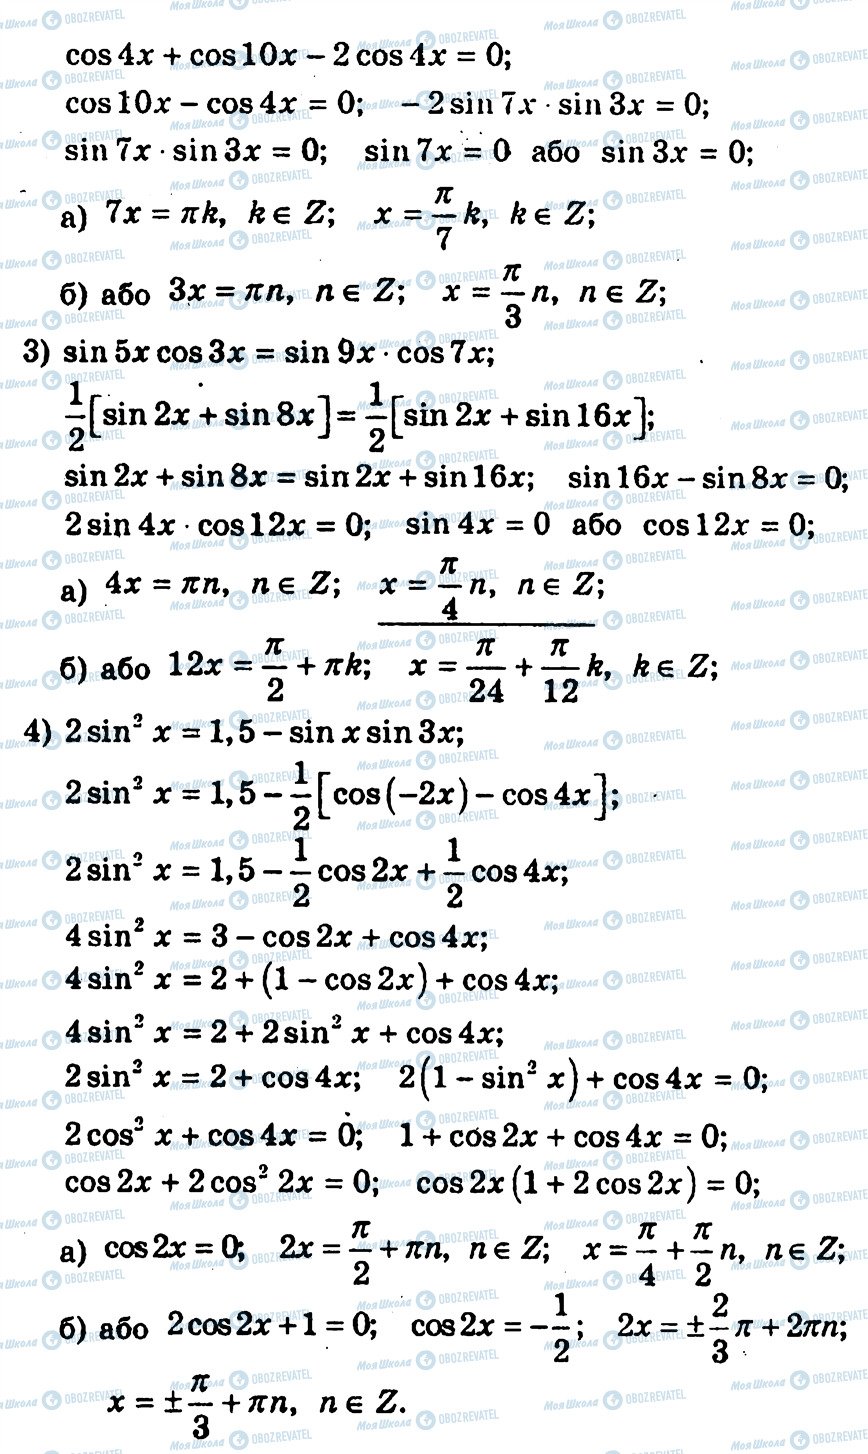 cos 4x + cos 10x − 2 cos 4x = 0;
cos 10x − cos 4x = 0; − 2 sin 7x · sin 3x = 0;
sin 7x · sin 3x = 0; sin 7x = 0 або sin 3x = 0;
а) 7x = πk, k ∈ Z; x = π/7 k, k ∈ Z;
б) або 3x = πn, n ∈ Z; x = π/3 n, n ∈ Z;
3) sin 5x cos 3x = sin 9x · cos 7x;
1/2 [sin 2x + sin 8x] = 1/2 [sin 2x + sin 16x];
sin 2x + sin 8x = sin 2x + sin 16x; sin 16x − sin 8x = 0;
2 sin 4x · cos 12x = 0; sin 4x = 0 або cos 12x = 0;
а) 4x = πn, n ∈ Z; x = π/4 n, n ∈ Z;
б) або 12x = π/2 + πk; x = π/24 + π/12 k, k ∈ Z;
4) 2 sin² x = 1,5 − sin x sin 3x;
2 sin² x = 1,5 − 1/2 [cos(−2x) − cos 4x];
2 sin² x = 1,5 − 1/2 cos 2x + 1/2 cos 4x;
4 sin² x = 3 − cos 2x + cos 4x;
4 sin² x = 2 + (1 − cos 2x) + cos 4x;
4 sin² x = 2 + 2 sin² x + cos 4x;
2 sin² x = 2 + cos 4x; 2(1 − sin² x) + cos 4x = 0;
2 cos² x + cos 4x = 0; 1 + cos 2x + cos 4x = 0;
cos 2x + 2 cos² 2x = 0; cos 2x (1 + 2 cos 2x) = 0;
а) cos 2x = 0; 2x = π/2 + πn, n ∈ Z; x = π/4 + π/2 n, n ∈ Z;
б) або 2 cos 2x + 1 = 0; cos 2x = − 1/2; 2x = ± 2/3 π + 2πn;
x = ± π/3 + πn, n ∈ Z.
Моя Школа OBOZREVATEL